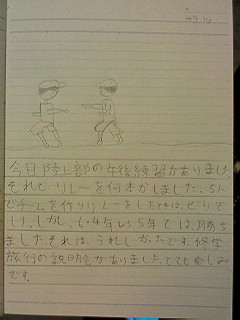 今日陸上部の午後練習がありました。
それで、リレーを何本かしました。5人
でチームを作りリレーをした時は、ビリで
した。しかし、6・4年VS5年では、勝ち
ました。それは、うれしかったです。修学
旅行の説明会がありました。とても楽しみ
です。